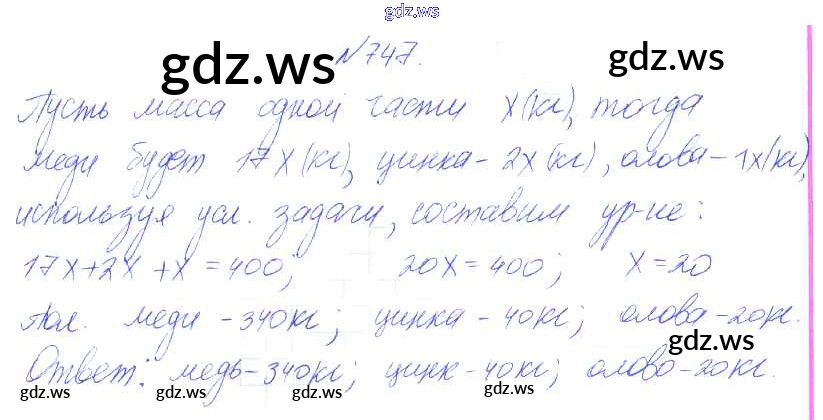 gdz.ws
№747.
Пусть масса одной части x(кг), тогда
меди будет 17x(кг), цинка - 2x(кг), олова - 1x(кг),
используя усл. задачи, составим ур-ие:
17x+2x+x=400; 20x=400; x=20
Пол. меди - 340кг; цинка - 40кг; олова - 20кг.
Ответ: медь - 340кг; цинк - 40кг; олово - 20кг.
gdz.ws
gdz.ws
gdz.ws
gdz.ws
gdz.ws
gdz.ws